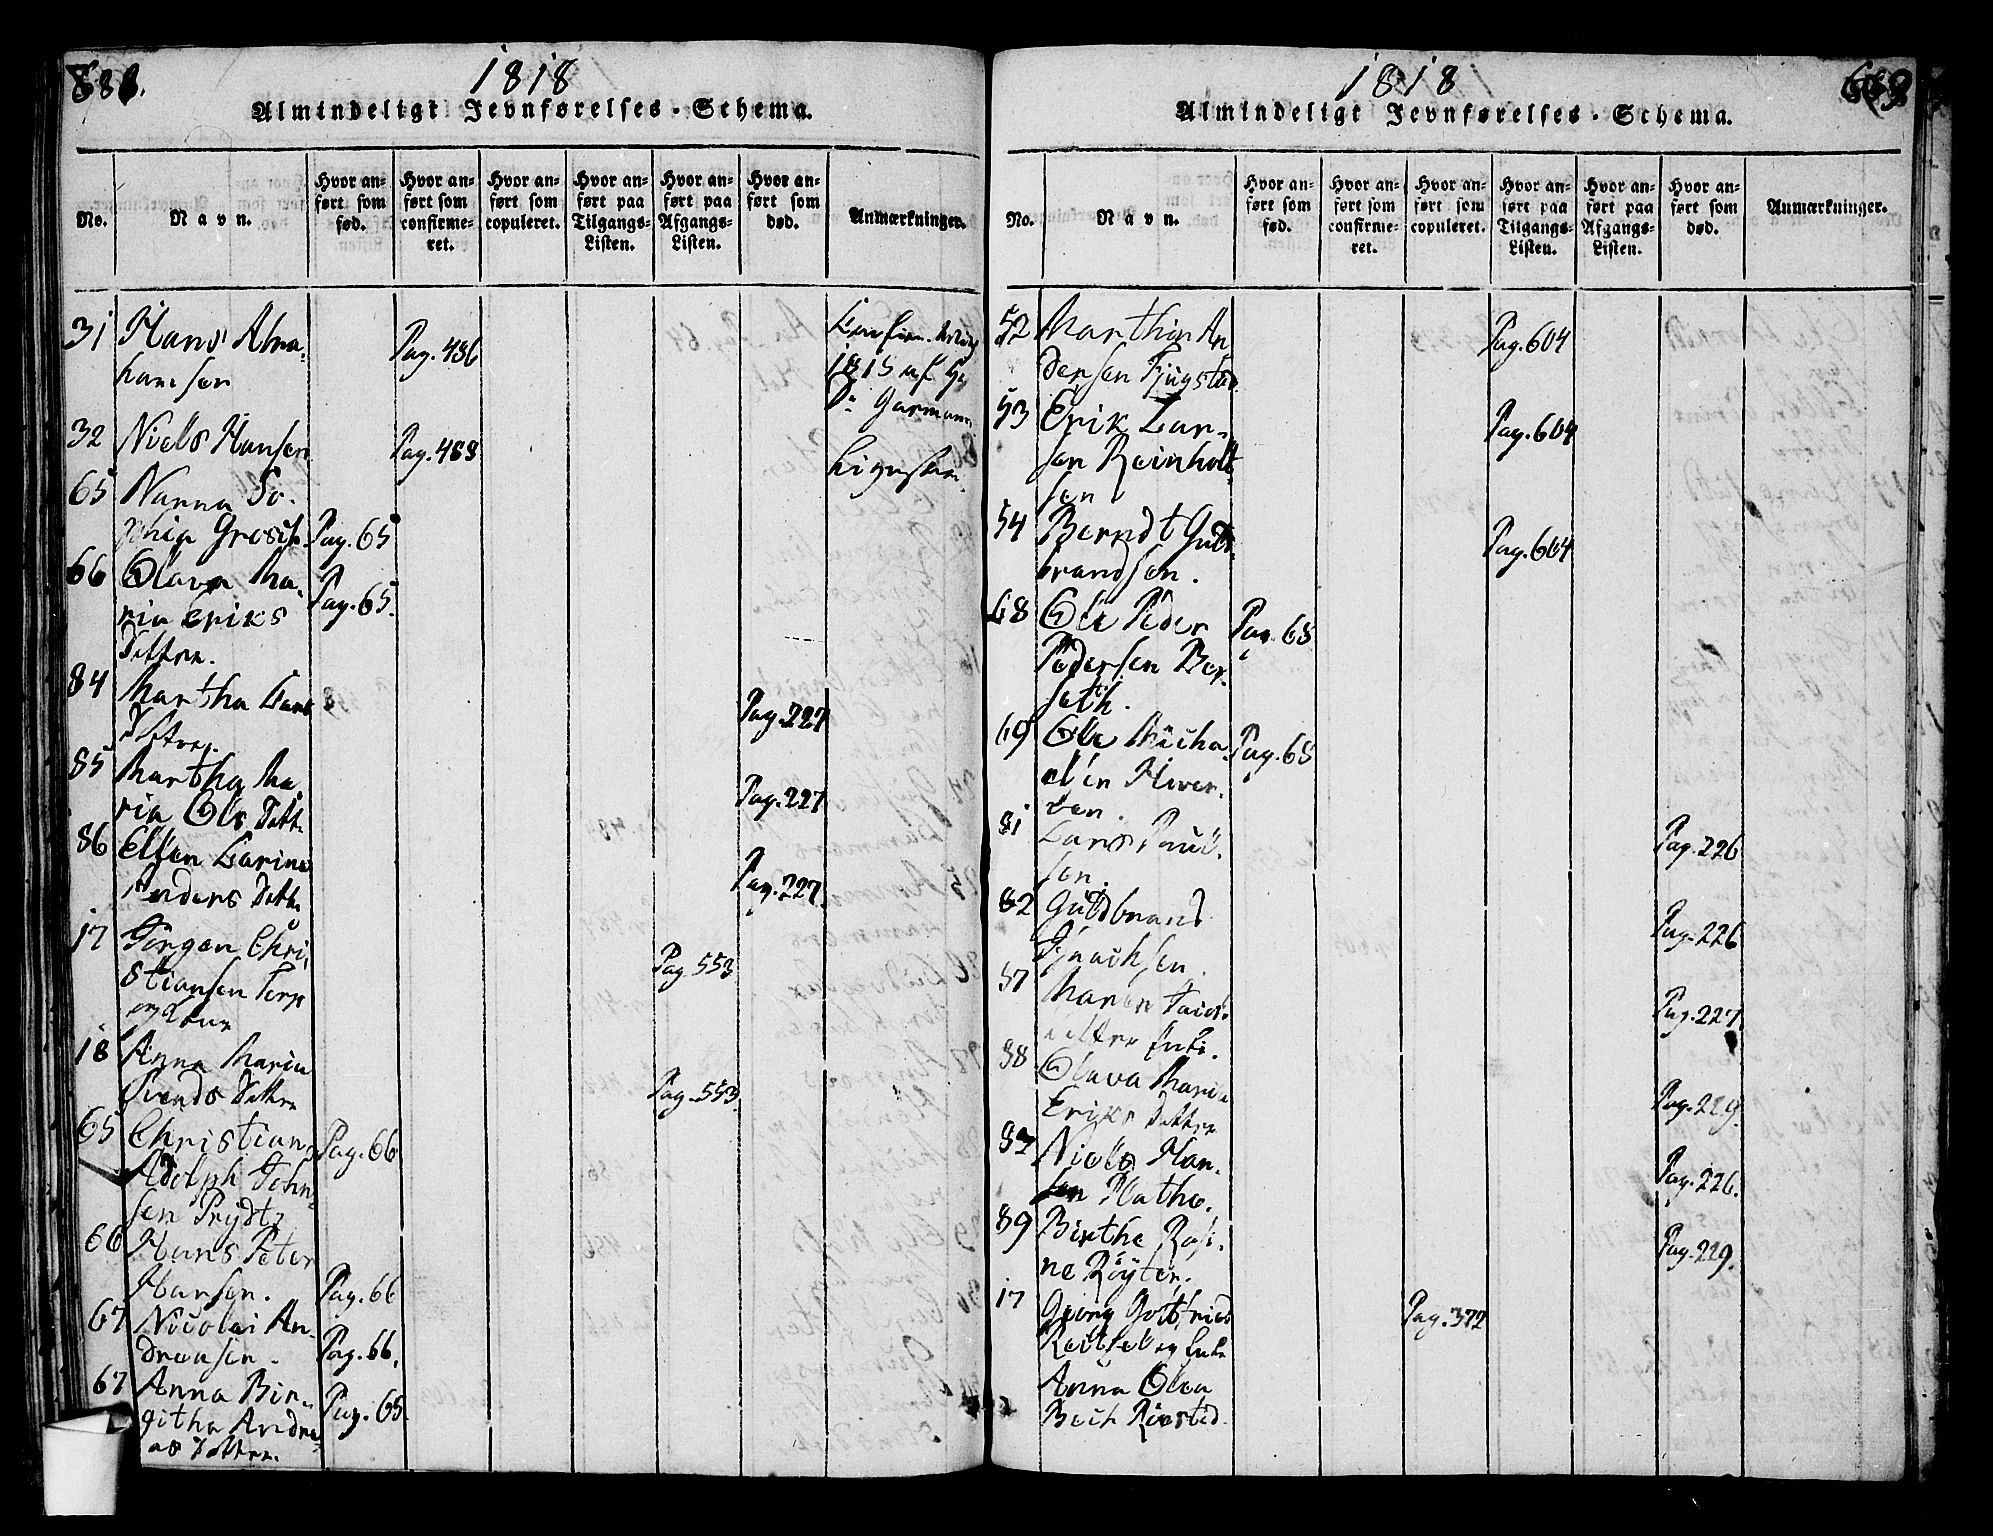 1818
Almindeligt Jevnførelses-Schema.
No.
Navn.
Hvor anført som fød.
Hvor anført som confirmeret.
Hvor anført som copuleret.
Hvor anført paa Tilgangs-Listen.
Hvor anført paa Afgangs-Listen.
Hvor anført som død.
Anmærkninger.
31 Hans Abra-
hamsen
Pag. 486
1815 af
32 Niels Hansen Pag. 488
65 Nanna So-
phia Grosch Pag. 65
66 Olava Ma-
ria Eriks
Dattr. Pag. 65.
84 Martha Lars
Dattr. Pag. 227
85 Martha Ma-
ria Ols Dattr. Pag. 227
86 Ellen Karine
Anders Dattr. Pag. 227
17 Jørgen Chri-
stiansen
Pag. 553
18 Anna Maria
Svends Dattr Pag. 553
65 Christian
Adolph John-
sen Prydtz Pag. 66
66 Hans Peter
Hansen. Pag. 66
67 Nicolai An-
dreasen. Pag. 66.
67 Anna Bir-
githa Andre-
as Dattr. Pag. 65.
1818
Almindeligt Jevnførelses-Schema.
No.
Navn.
Hvor anført som fød.
Hvor anført som confirmeret.
Hvor anført som copuleret.
Hvor anført paa Tilgangs-Listen.
Hvor anført paa Afgangs-Listen.
Hvor anført som død.
Anmærkninger.
52 Marthin An
dersen Fjugstad Pag. 604
53 Erik Lar-
sen Reinholt
sen Pag. 604
54 Berndt Guld-
brandsen. Pag. 604
68 Ole Peder
Pedersen Ber-
seth. Pag. 65
69 Ole Micha-
elsen Hver-
ven. Pag. 65
81 Lars Poul-
sen. Pag. 226
82 Guldbrand
Pag. 226
87 Maren
Pag. 227
88 Olava Maria
Eriks Dattr Pag. 229.
83 Niels Han-
sen Plathe. Pag. 226.
89 Birthe Rasi-
ne Röyter. Pag. 229.
17 Georg Gotfried
Anna Olea
Bech
Pag. 372